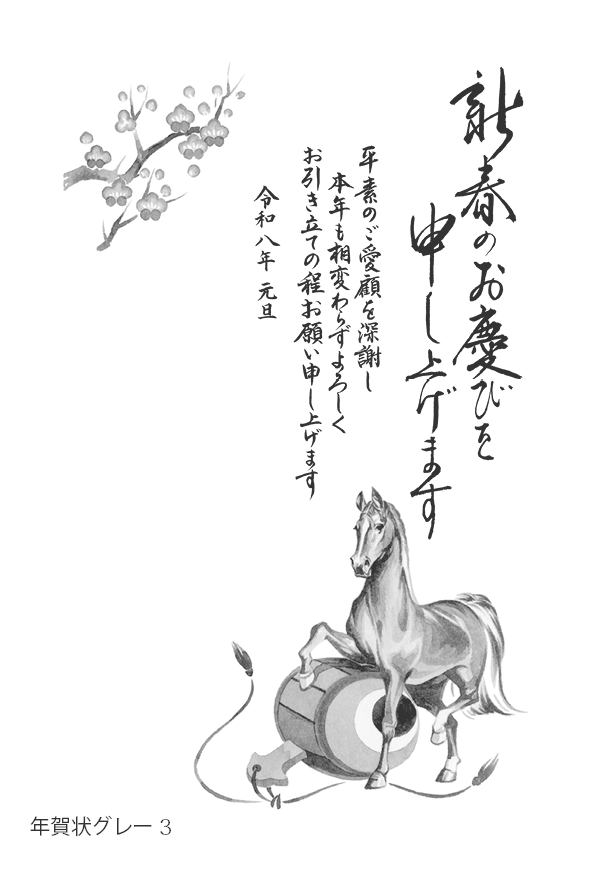 新春のお慶びを
申し上げます
平素のご愛顧を深謝し
本年も相変わらずよろしく
お引き立ての程お願い申し上げます
令和八年 元旦
年賀状グレー 3